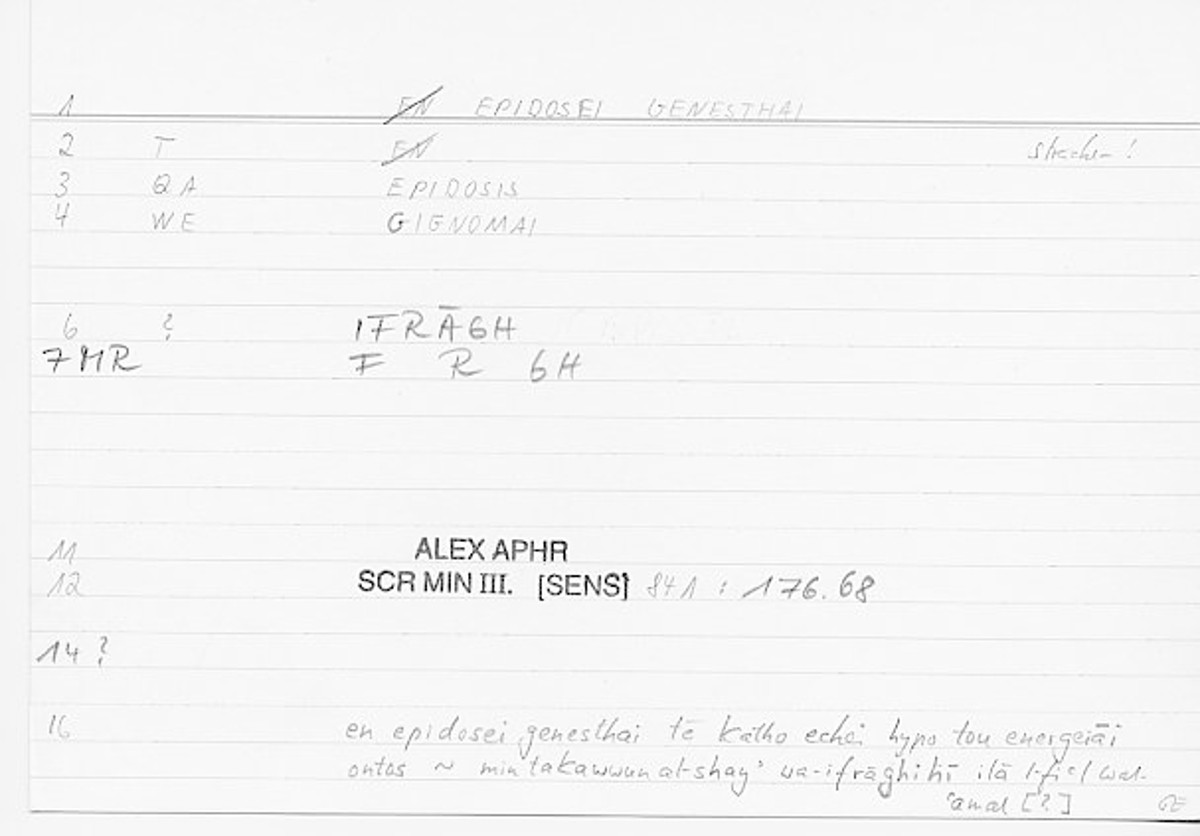 1 EN EPIDOSEI GENESTHAI
2 T EN streichen!
3 QA EPIDOSIS
4 WE GIGNOMAI
6 ? IFRĀGH
7 MR F R GH
11 ALEX APHR
12 SCR MIN III. [SENS] 84 1 : 176.68
14 ?
16 en epidosei genesthai tē katho echei hypo tou energeiāi
ontos ~ min takawwun al-shayʾ wa-ifrāghihī ilā l-fiʿl wal-
ʿamal [?] GE